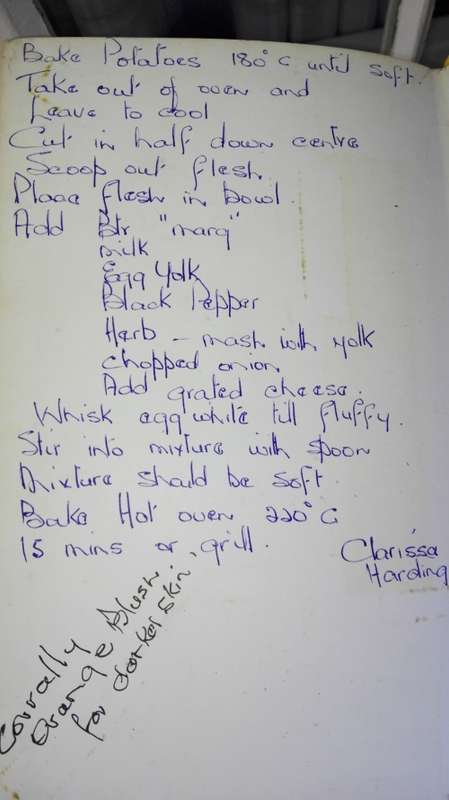 Bake Potatoes 180°C until soft.
Take out of oven and
Leave to cool
Cut in half down centre
Scoop out flesh.
Place flesh in bowl.
Add Btr "marg"
milk
Egg Yolk
Black Pepper
Herb - mash with yolk
chopped onion
Add grated cheese.
Whisk egg white till fluffy.
Stir into mixture with spoon
Mixture should be soft.
Bake Hot oven 220°C
15 mins or grill.
Clarissa
Harding
Corrally
Orange Blush
for darker skin.